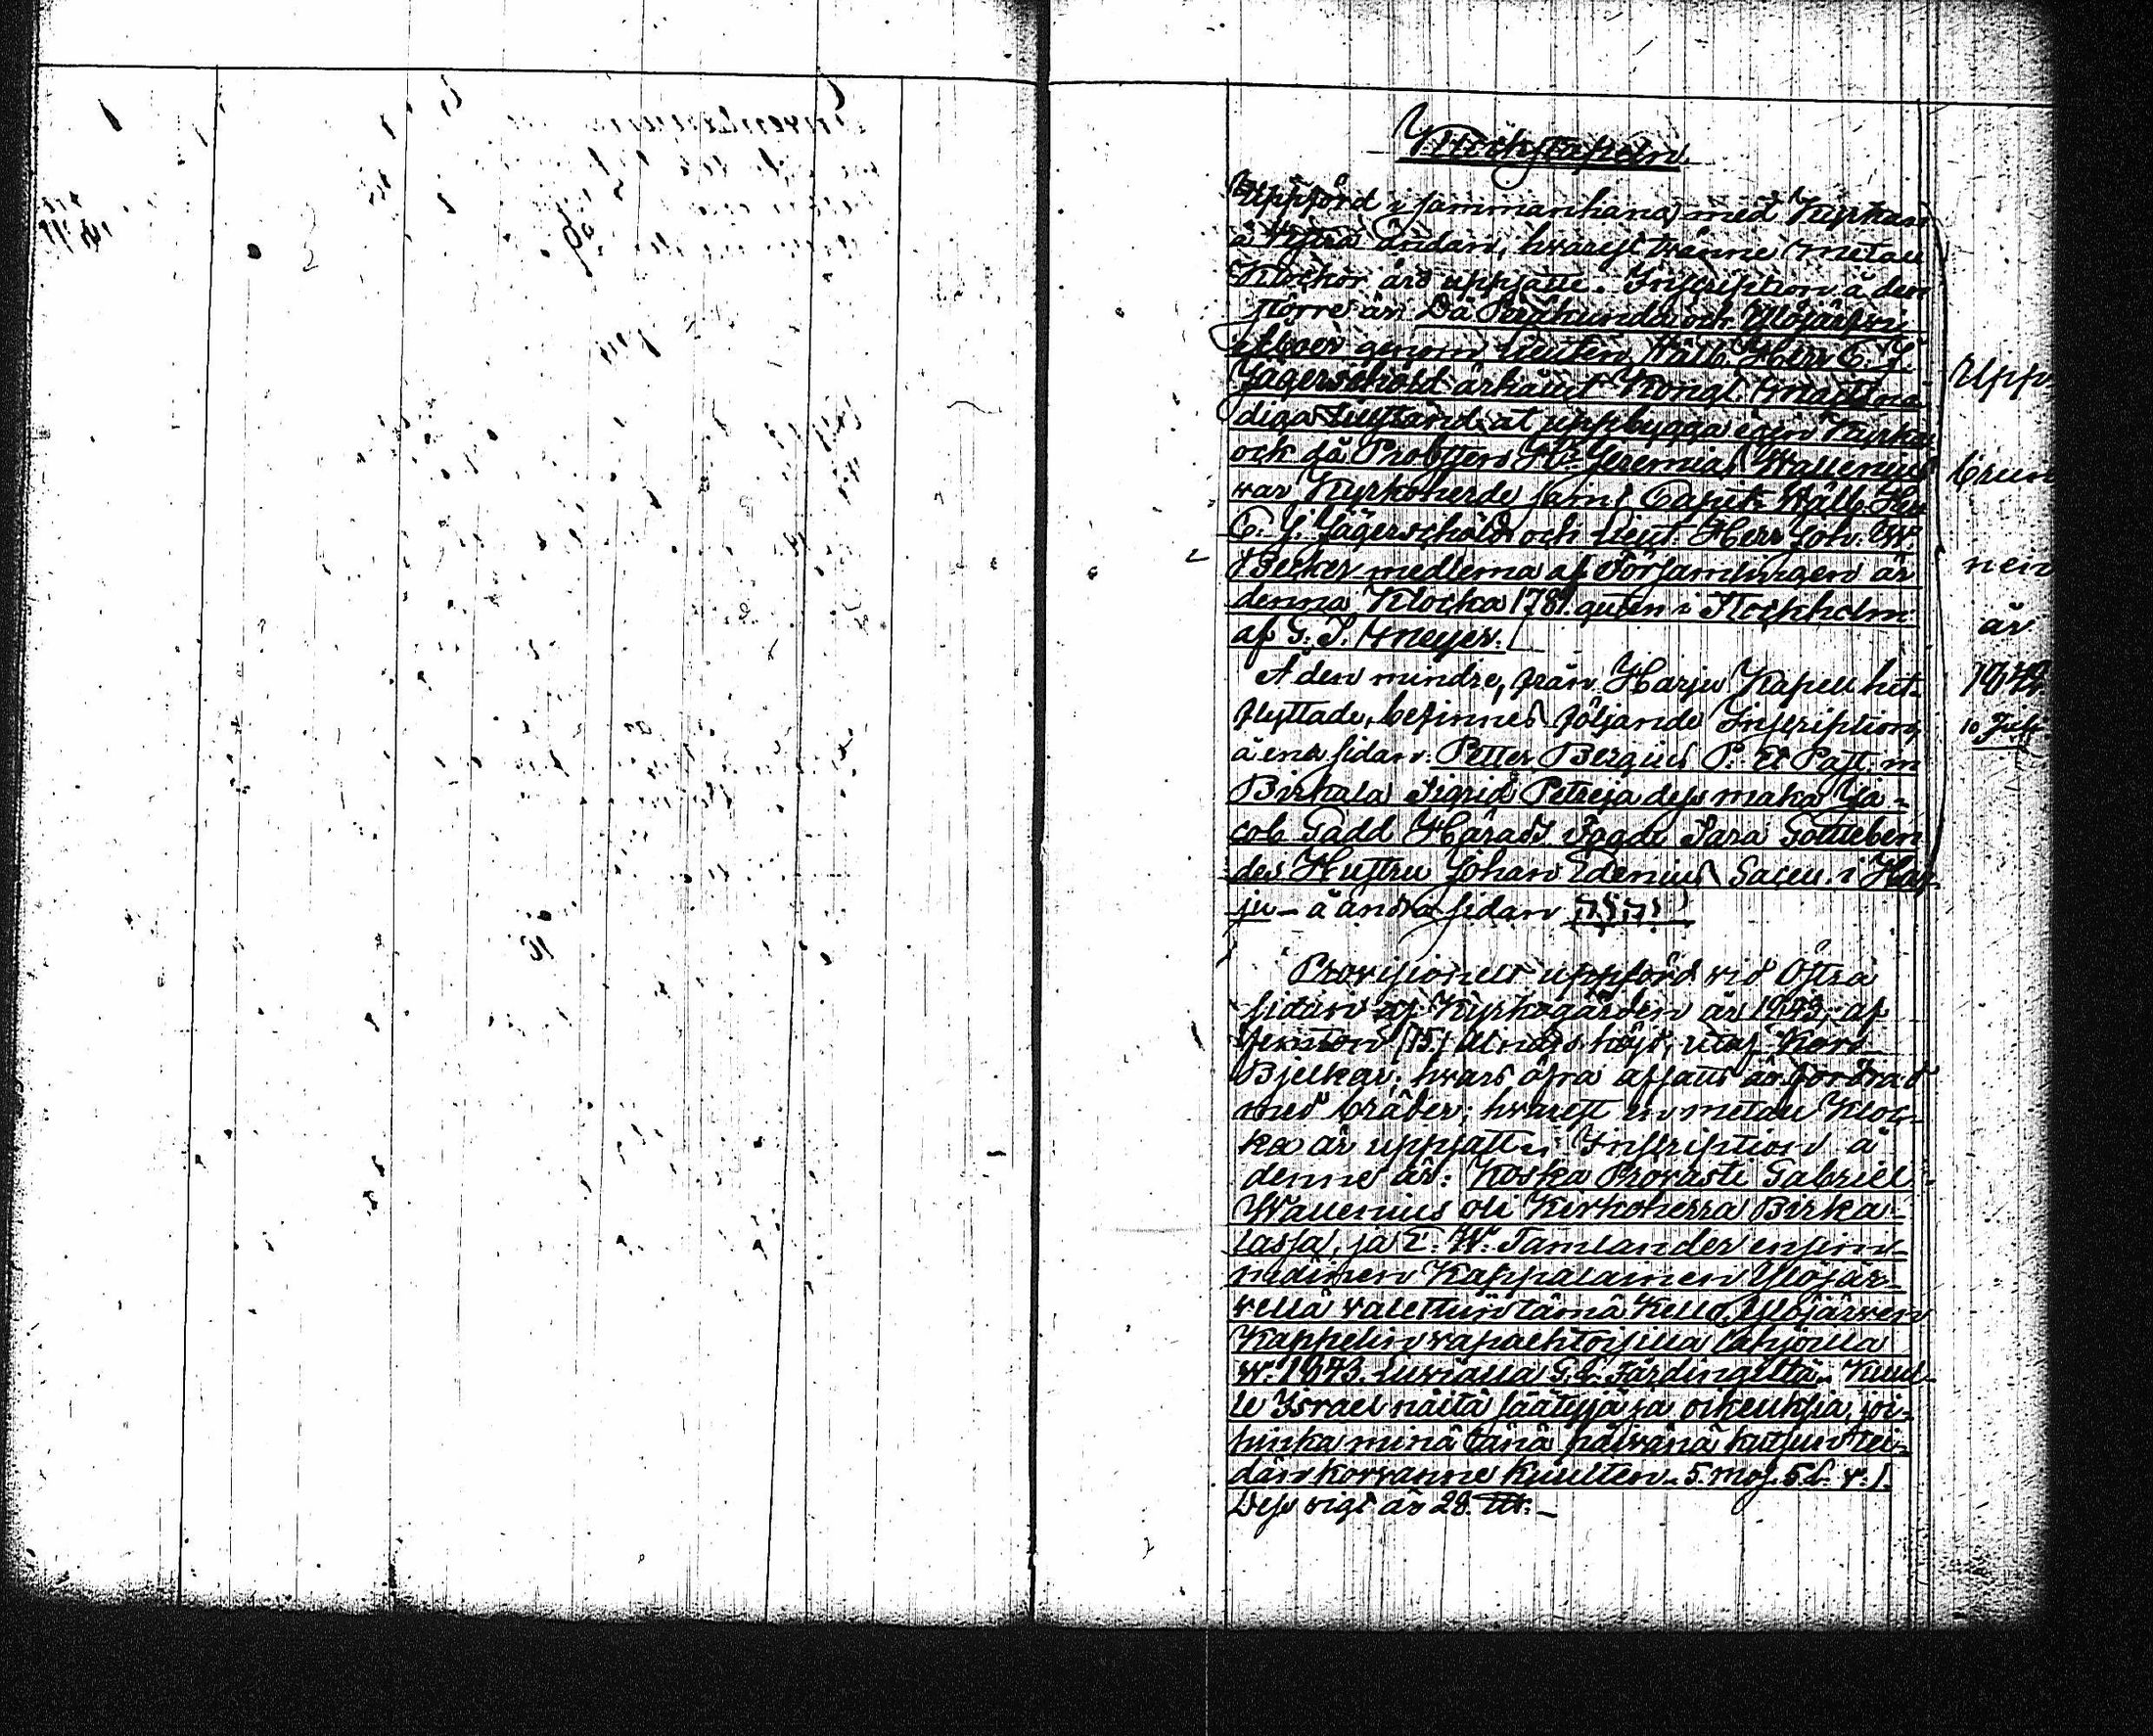 Klockstapeln
Uppförd i sammanhang med Kyrkan
å Wästra ändan, hwarest twänne metall
Klockor äro uppsatte. Inscription å den
större är: Då Sorfkunda och Ylöjärfwi
genom Lieuten. Wälb. Herr C. J.
Jägerschöld ärhållit Kongl. Maits nå-
diga tillstånd at uppbygga egen Kyrka
och då Probsten Hr. Jeremias Wallenius
war Kyrkoherde samt Capit. Wälb. Herr
C. J. Jägerschöld och Lieut. Herr Joh. W.
Becker medlema af Församlingen är
denna Klocka 1781 guten i Stockholm
af G. S. Meyer.
Å den mindre, från Harju Kapell hit-
flyttade, befinnes följande Inscription
å ena sidan: Petter Bergius P. et Past. in
Birkala Sigrid Petreja dess maka Ja-
cob Gadd Härads Fogde Sara Gottleben
des Hustru Johan Edenius Sacell. i Har-
ju - å andra sidan
Provisionelt uppförd wid Östra
sidan af Kyrkogården år 1843, af
femton (15) Alnars höjd, utaf Kors
Bjelkar, hwars öfra afsats är fordrad
med bräder, hwarest en metall Kloc-
ka är uppsatt. Inscription å
denne är: Koska Provasti Gabriel
Wallenius oli Kirkoherra Birka-
lassa, ja E. W. Tamlander ensim-
mäinen Kappalainen Ylöjär-
vellä valettiin tämä Kello, Ylöjärven
Kappelin vapaehtoisilla lahjoilla
w. 1843. Luvialla G. L. Färdingiltä. Kuu-
le Israel näitä säätyjä ja oikeuksia, joi-
hinka minä tänä päivänä kutsun tei-
dän korvanne kuulten. 5. Mos. 5 L. v. 1.
Dess vigt är 28.
Upp-
brun
nen
år
1842
10 Juli